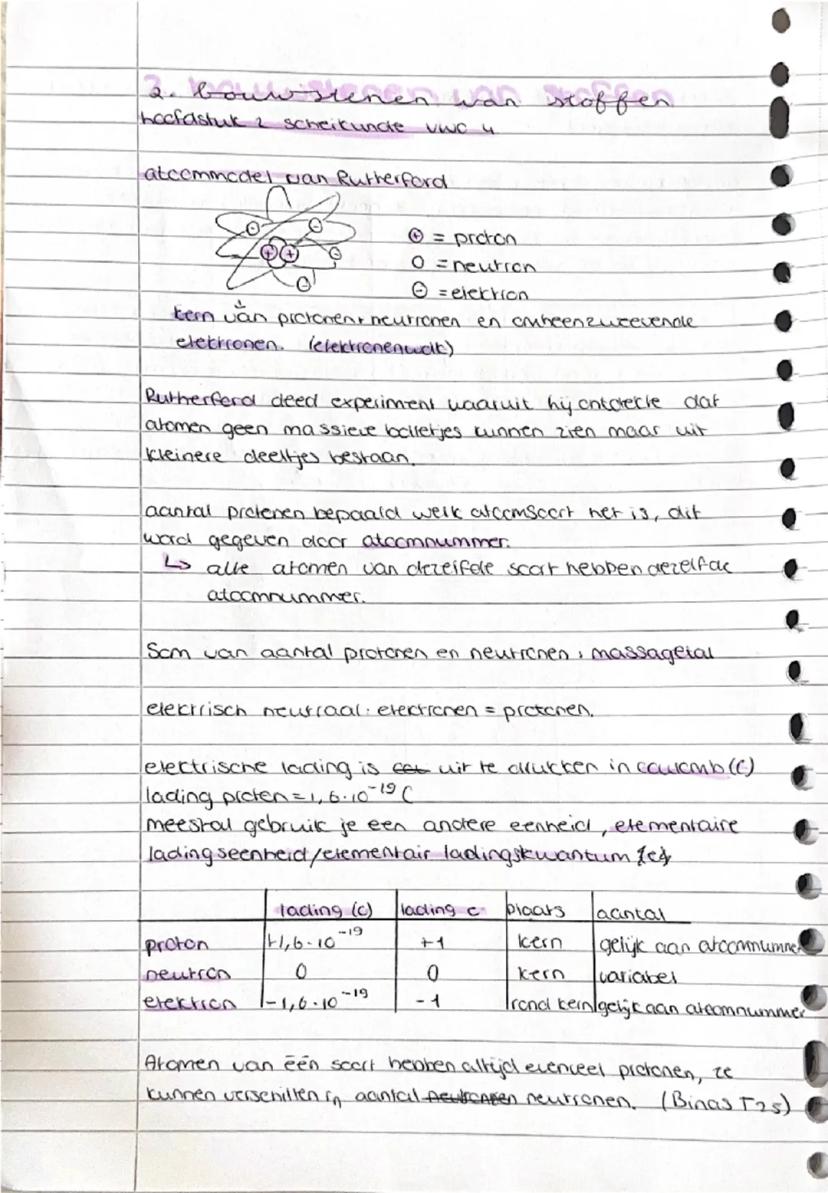 2. bouwstenen van stoffen
hoofdstuk 2 scheikunde vwo 4
atoommodel van Rutherford
⊕ = proton
O = neutron
⊖ = elektron
kern van protonen + neutronen en omheenzwevende
elektronen. (elektronenwolk)
Rutherford deed experiment waaruit hij ontdekte dat
atomen geen massieve bolletjes kunnen zien maar uit
kleinere deeltjes bestaan.
aantal protonen bepaald welk atoomsoort het is, dit
word gegeven door atoomnummer.
↳ alle atomen van dezelfde soort hebben dezelfde
atoomnummer.
Som van aantal protonen en neutronen : massagetal
elektrisch neutraal: elektronen = protonen.
elektrische lading is uit te drukken in coulomb (C)
lading proton = 1,6·10⁻¹⁹ C
meestal gebruik je een andere eenheid, elementaire
ladingseenheid/elementair ladingskwantum {e}
lading (C) lading e plaats aantal
proton +1,6·10⁻¹⁹ +1 kern gelijk aan atoomnummer
neutron 0 0 kern variabel
elektron -1,6·10⁻¹⁹ -1 rond kern gelijk aan atoomnummer
Atomen van één soort hebben altijd evenveel protonen, ze
kunnen verschillen in aantal neutronen. (Binas T25)